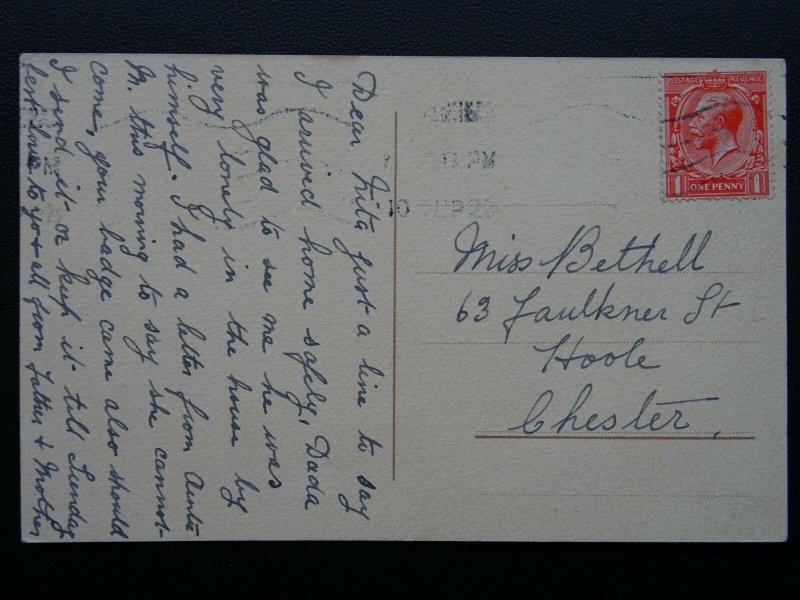 Dear Nita just a line to say
I arrived home safely, Dada
was glad to see me he was
very lonely in the house by
himself. I had a letter from Auntie
M. this morning to say she cannot
come, your badge came also should
I send it or keep it till Sunday
best love to you all from Father & Mother
POSTAGE REVENUE
1 ONE PENNY 1
PM
10 SEP 23
Miss Bethell
63 Faulkner St
Hoole
Chester.